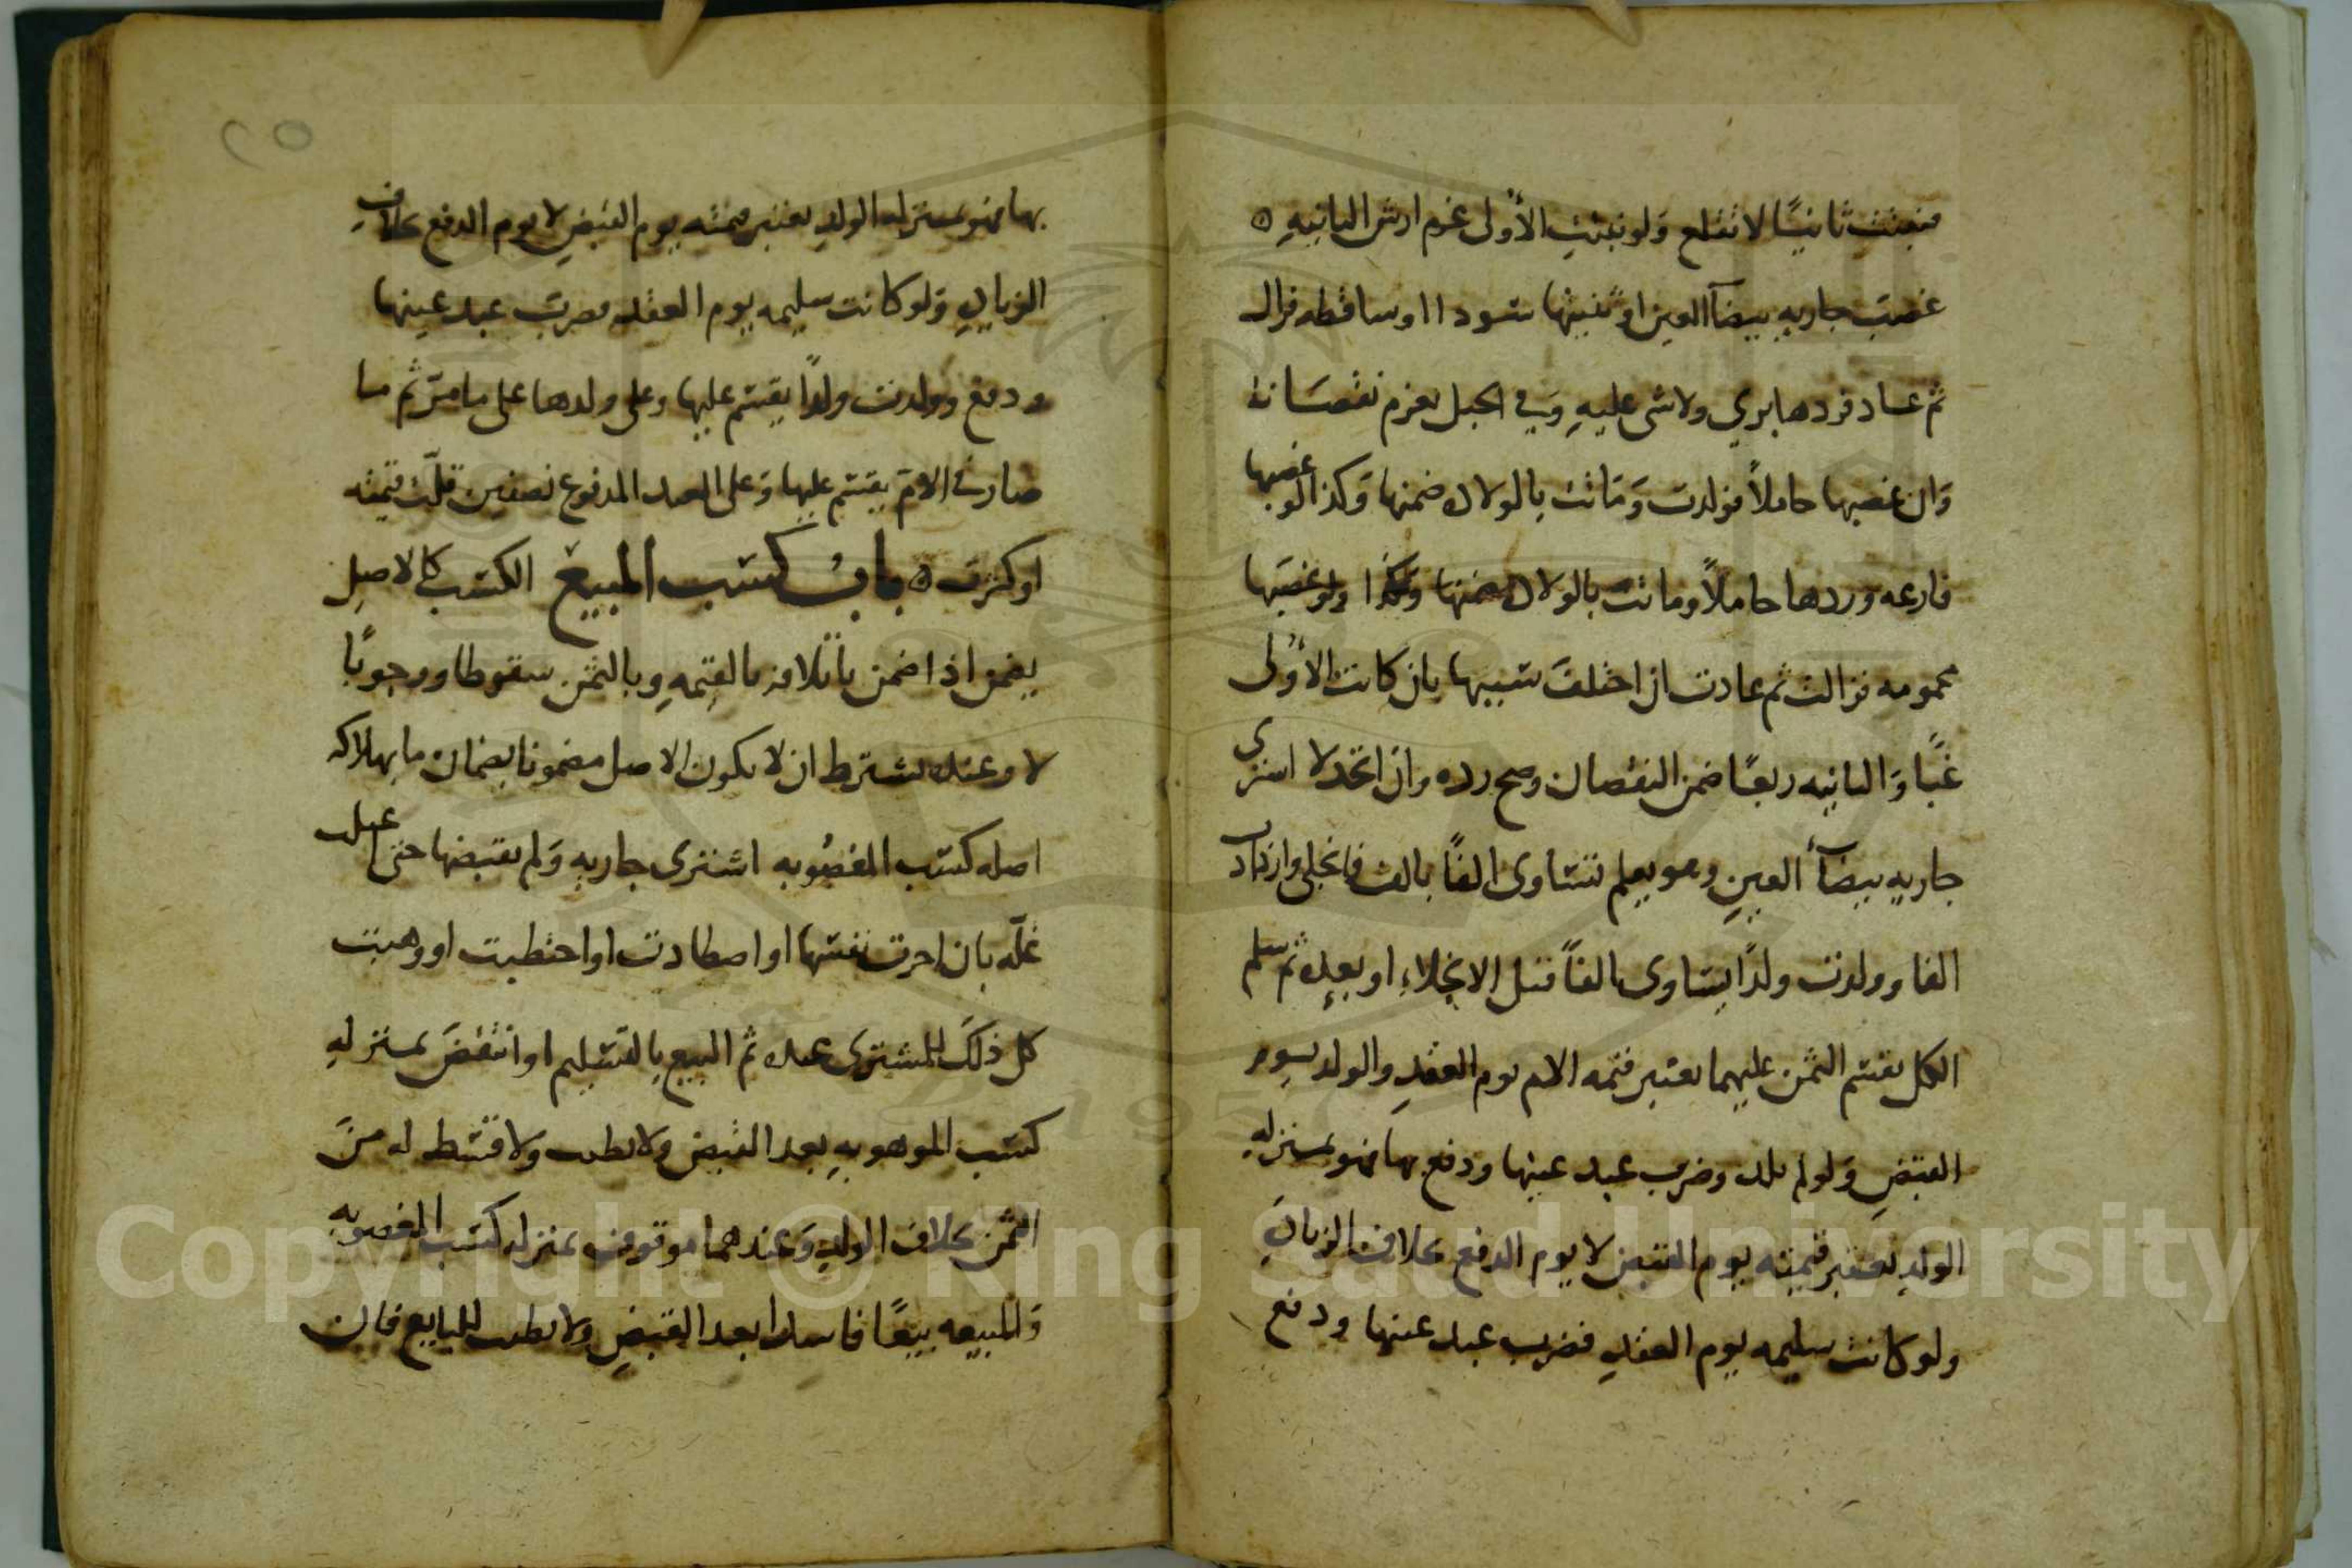 فنبتت ثانيًا لا تقلع وَلو نبتتِ الأولى غرم ارش الثانيهِ ه
غصبَ جاريه بيضآ العين او ثنيتها سودا او ساقطه فزال
ثم عاد فردها بري ولا شى عليهِ وَفي الحبل يغرم نقصَانه
وَان غصبها حاملاً فولدت وَمَاتت بالولاد ضمنها وَكذا لو غصبها
فارغه وردها حاملاً وماتت بالولاد ضمنها وكذا ولو غصَبها
محمومه فزالت ثم عادت ان اختلفَ سببها بان كانت الأولى
غبًا وَالثانيه ربعًا ضمن النقصان وصح رده وان اتحد لا اشترى
جاريه بيضآ العينِ وهو يعلم تساوى الفًا بالف فانجلى وازداد
الفا وولدت ولدًا يساوى الفاً قبل الانجلاءِ او بعده ثم سلم
الكل يقسم الثمن عليهما يعتبر قيمه الام يوم العقدِ والولد يوم
القبضِ وَلو لم تلد وضرب عبد عينها ودفع بها فهو بمنزلهِ
الولدِ تعتبر قيمته يوم القبض لا يوم الدفع بخلاف الزيادهِ
ولو كانت سليمه يوم العقدِ فضرب عبد عينها ودفع
بها فهو بمنزله الولدِ يعتبر قيمته يوم القبضِ لا يوم الدفع بخلاف
الزيادهِ وَلو كانت سليمه يوم العقد فضرب عبد عينها
ودفع وولدت ولدًا يقسم عليها وعلى ولدها على ما مرّ ثم ما
صار في الام يقسم عليها وَعلى العبد المدفوع نصفين قلّت قيمته
او كثرت ه باب كسب المبيع الكسب كالاصل
يضمن اذا ضمن باتلافه بالقيمهِ وبالثمن سقوطا ووجوبًا
لا وعنده يشترط ان لا يكون الاصل مضمونا بضمان ما بهلاكه
اصله كسب المغصُوبه اشترى جاريه وَلم يقبضها حتى
غلّه بان اجرت نفسها او اصطادت او احتطبت او وهبت
كل ذلكَ للمشترى عنده ثم البيع بالتسليم او انتقضَ بمنزلهِ
كسب الموهوبهِ بعد القبض ولا يطيب ولا قسط له منَ
الثمن بخلاف الولدِ وَعندهما موقوف بمنزله كسب المغصوبه
وَالمبيعه بيعًا فاسدا بعد القبضِ ولا يطيب للبايع فان
٢٥
Copyright © King Saud University
1957